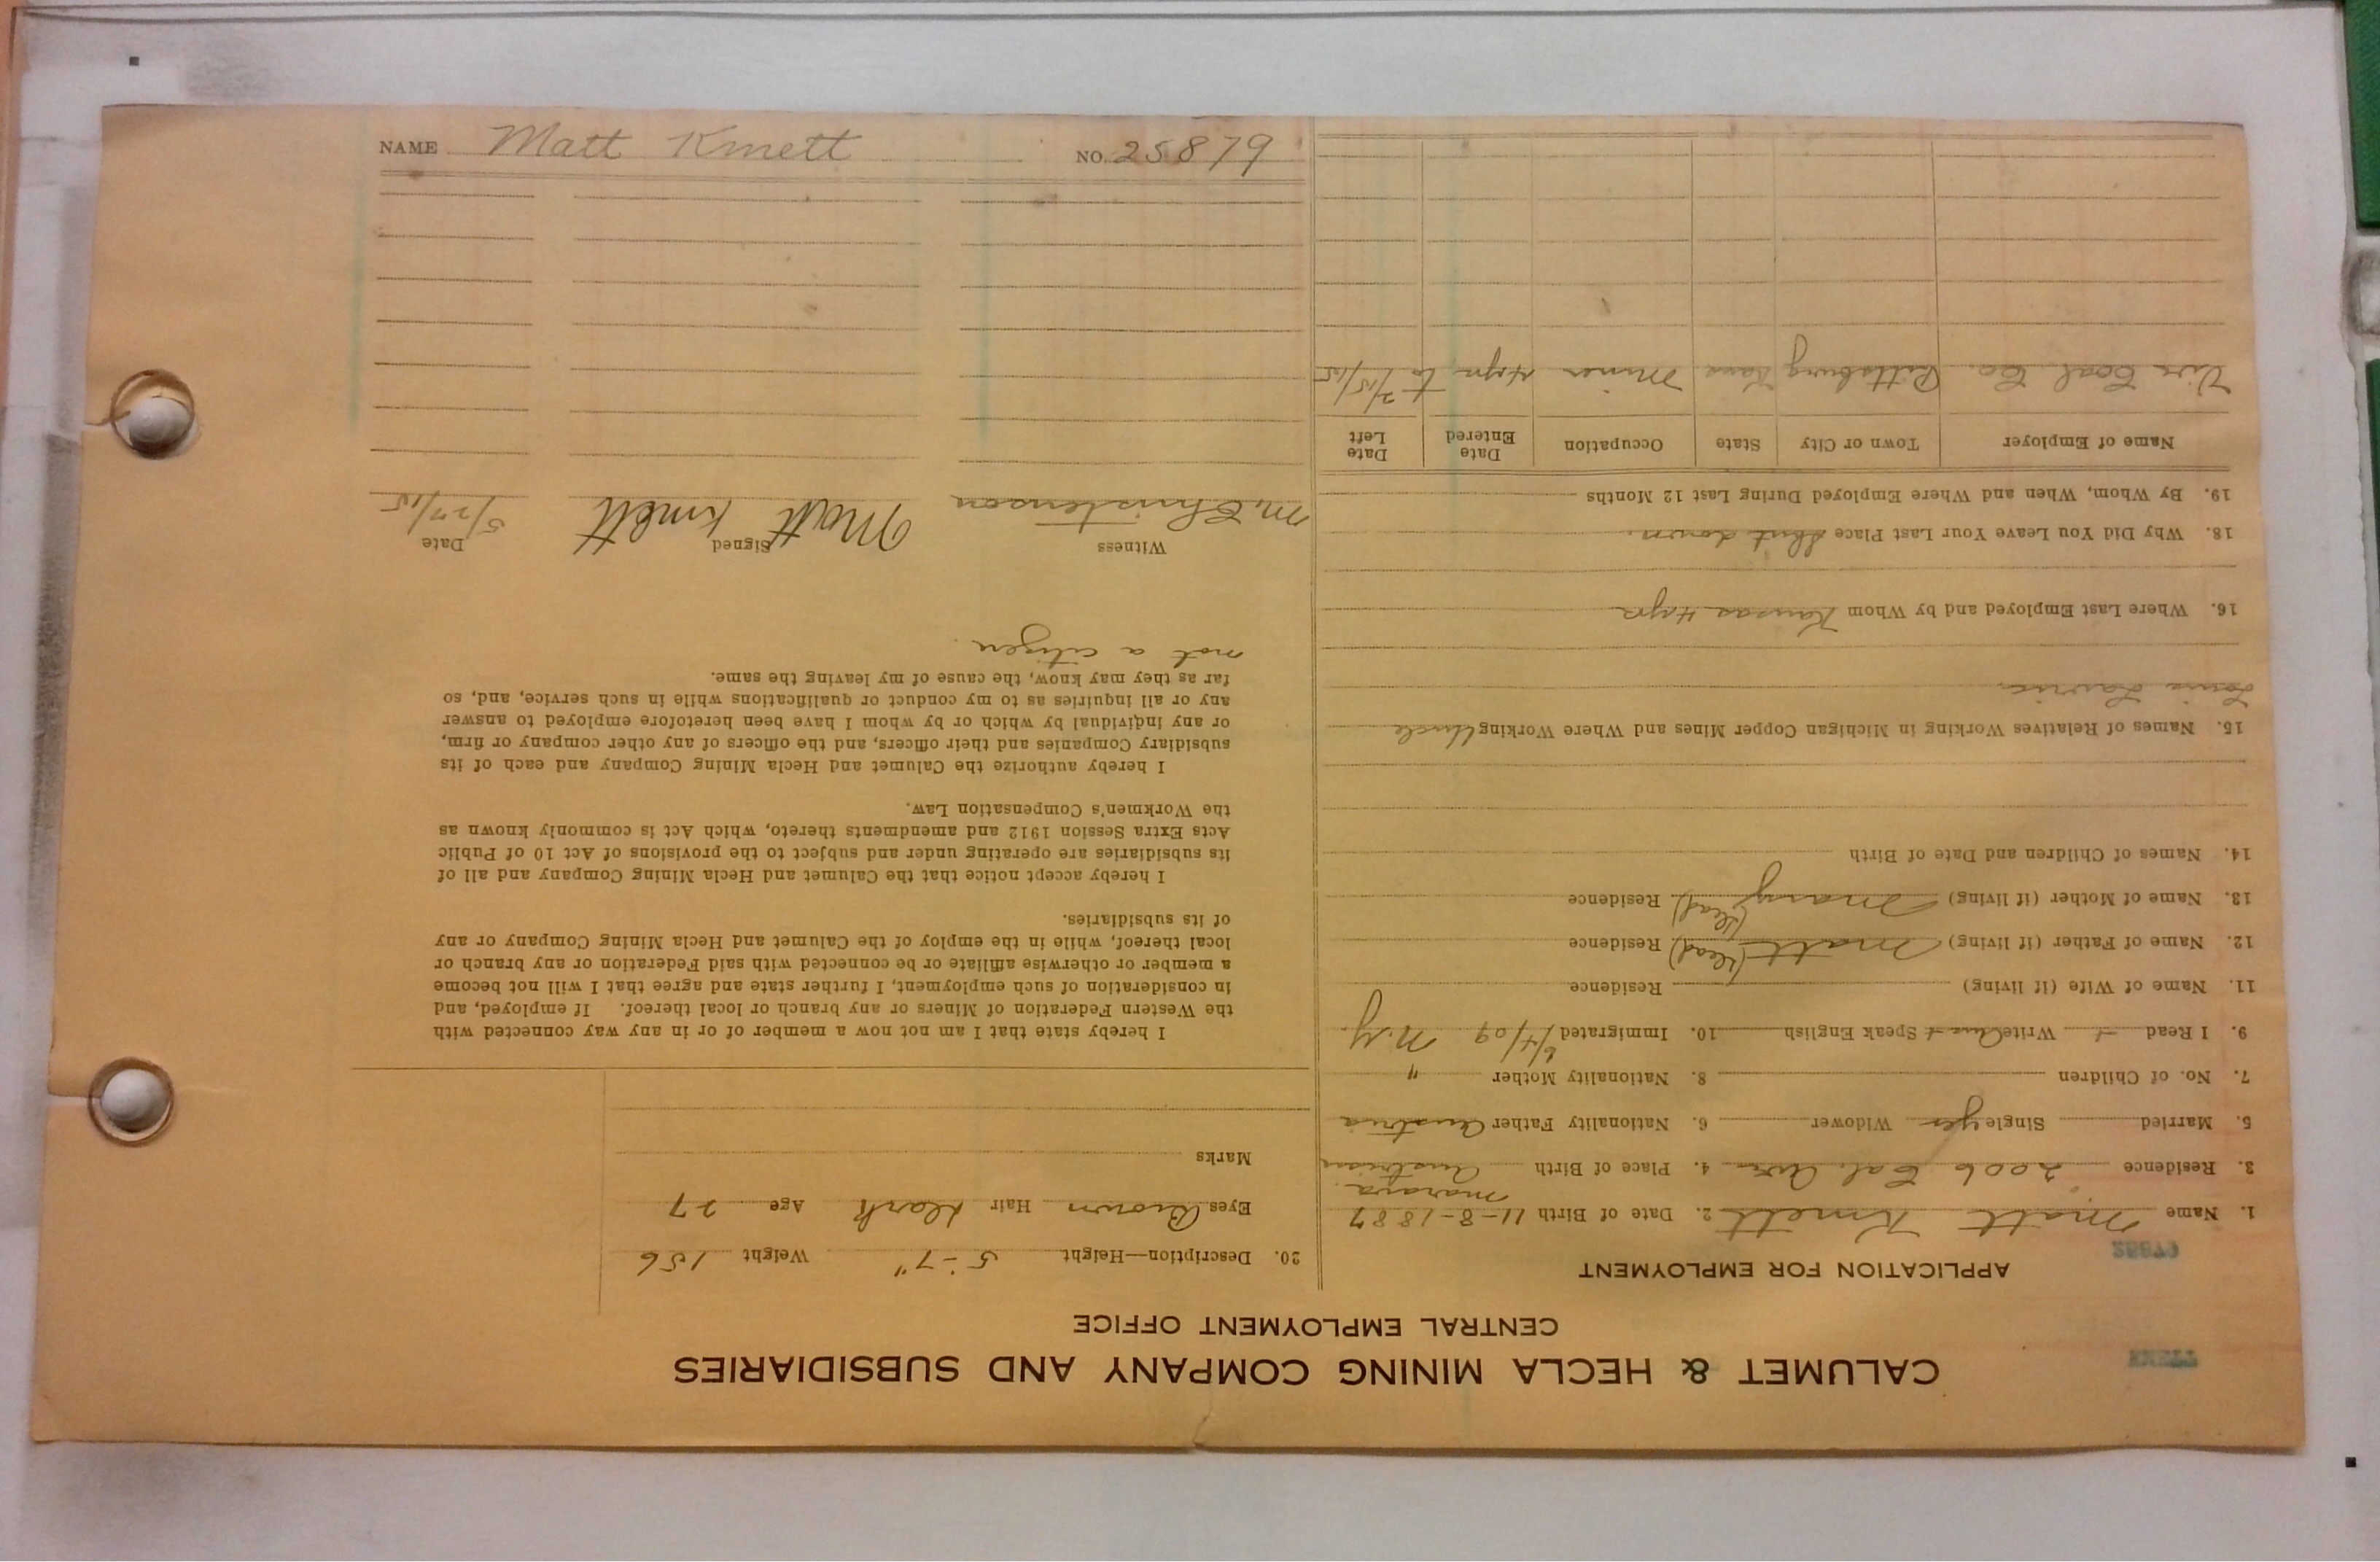 CALUMET & HECLA MINING COMPANY AND SUBSIDIARIES
KMETT
CENTRAL EMPLOYMENT OFFICE
APPLICATION FOR EMPLOYMENT
25879
1. Name Matt Kmett 2. Date of Birth 11-8-1887
3. Residence 2006 Cal. Ave 4. Place of Birth Austria
5. Married Single yes Widower 6. Nationality Father Austria
7. No. of Children 8. Nationality Mother "
9. I Read Write Speak English 10. Immigrated 6/4/09 N.Y.
11. Name of Wife (if living) Residence
12. Name of Father (if living) Matt (dead) Residence
13. Name of Mother (if living) Mary (dead) Residence
14. Names of Children and Date of Birth
15. Names of Relatives Working in Michigan Copper Mines and Where Working Uncle
16. Where Last Employed and by Whom Kansas 4 yrs
18. Why Did You Leave Your Last Place Shut down.
19. By Whom, When and Where Employed During Last 12 Months
Name of Employer Town or City State Occupation Date Entered Date Left
Coal Co. Pittsburg Kans Miner 4 yrs to 2/15/15
20. Description—Height 5-7" Weight 156
Eyes Brown Hair dark Age 27
Marks
I hereby state that I am not now a member of or in any way connected with
the Western Federation of Miners or any branch or local thereof. If employed, and
in consideration of such employment, I further state and agree that I will not become
a member or otherwise affiliate or be connected with said Federation or any branch or
local thereof, while in the employ of the Calumet and Hecla Mining Company or any
of its subsidiaries.
I hereby accept notice that the Calumet and Hecla Mining Company and all of
its subsidiaries are operating under and subject to the provisions of Act 10 of Public
Acts Extra Session 1912 and amendments thereto, which Act is commonly known as
the Workmen's Compensation Law.
I hereby authorize the Calumet and Hecla Mining Company and each of its
subsidiary Companies and their officers, and the officers of any other company or firm,
or any individual by which or by whom I have been heretofore employed to answer
any or all inquiries as to my conduct or qualifications while in such service, and, so
far as they may know, the cause of my leaving the same.
not a citizen.
Witness Signed Date
M. Christenson Matt Kmett 5/27/15
NAME Matt Kmett NO. 25879